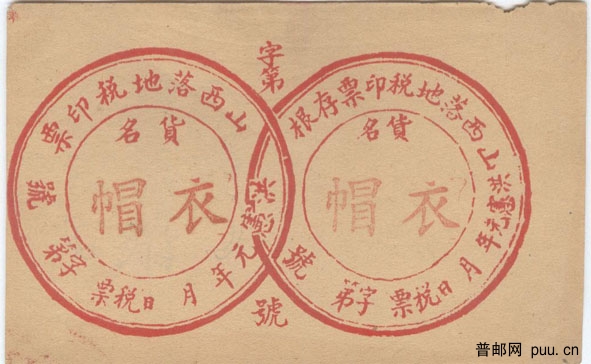 字第
號
山西落地税印票
貨名
衣帽
洪憲元年 月 日
税票 字第 號
山西落地税印票存根
貨名
衣帽
洪憲元年 月 日
税票 字第 號
普邮网 puu.cn